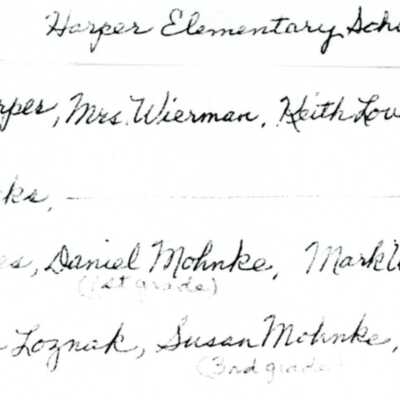 Harper Elementary Sch
rper, Mrs. Wierman, Keith Lov
ks,
es, Daniel Mohnke, Mark W
(1st grade)
Loznak, Susan Mohnke,
(3rd grade)